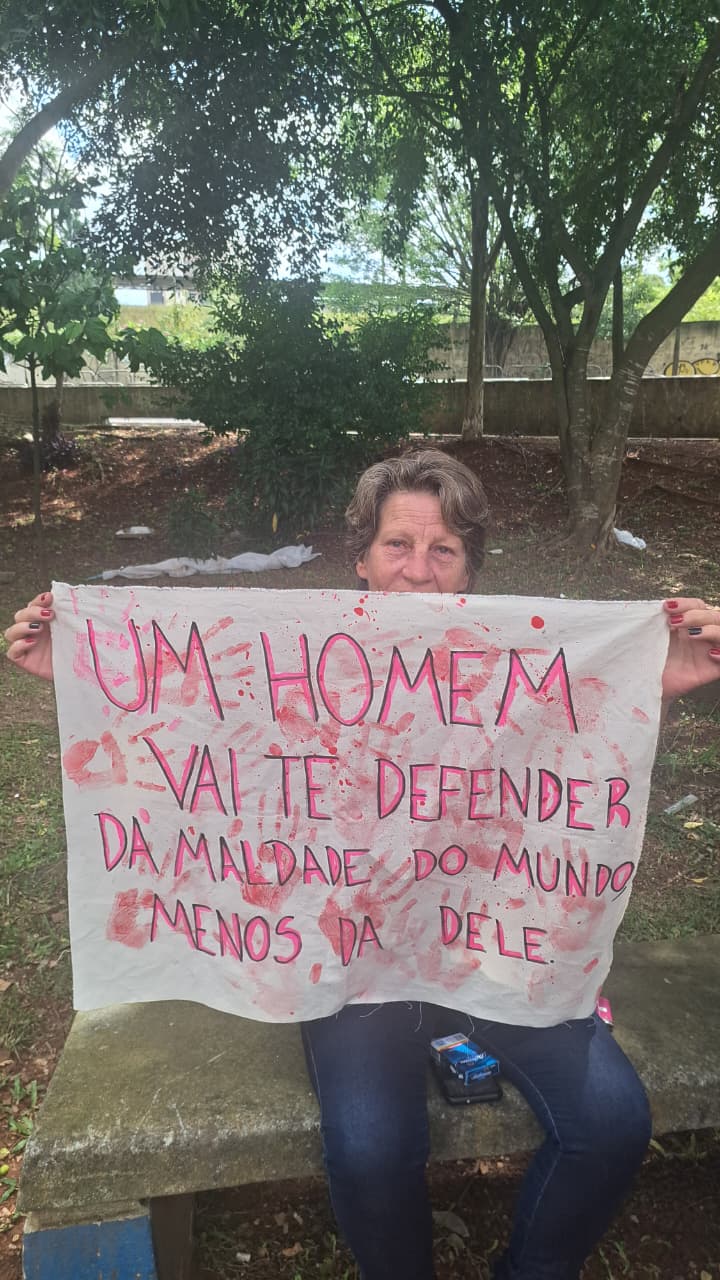 UM HOMEM
VAI TE DEFENDER
DA MALDADE DO MUNDO,
MENOS DA DELE.